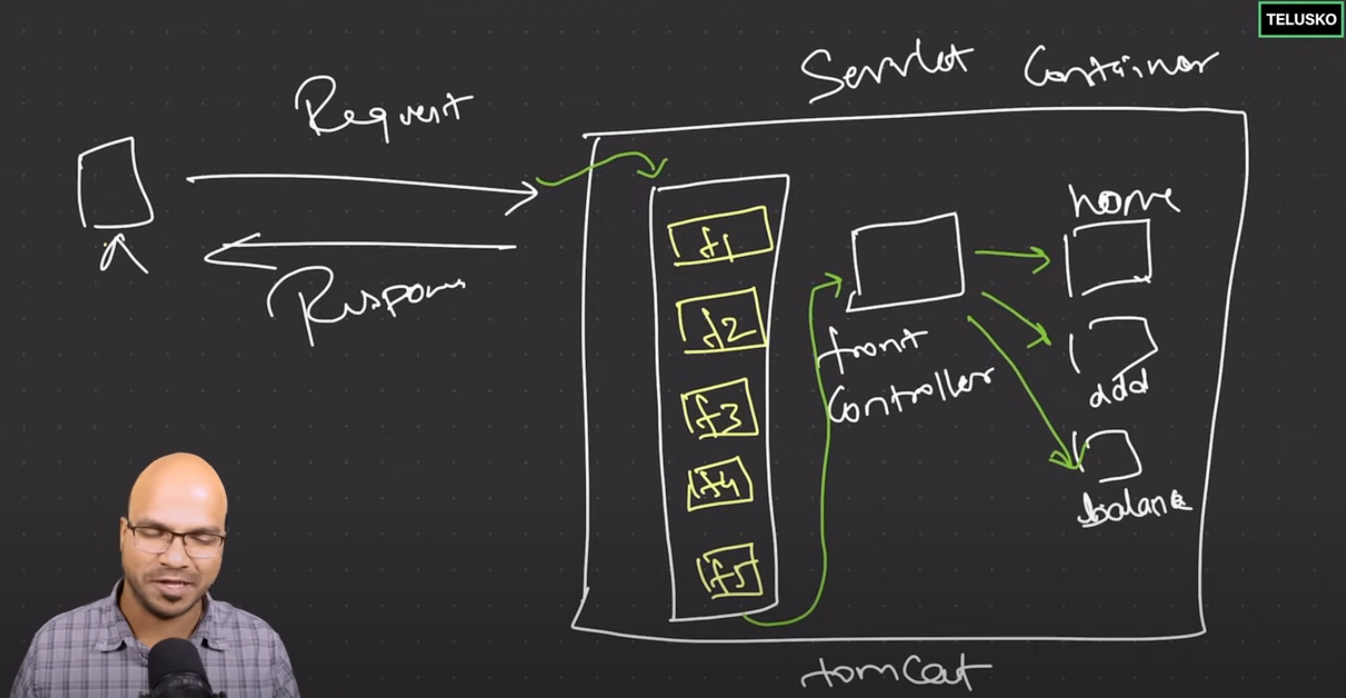 TELUSKO
Servlet Container
Request
Respons
f1
f2
f3
f4
f5
front
Controller
home
add
balance
tomcat